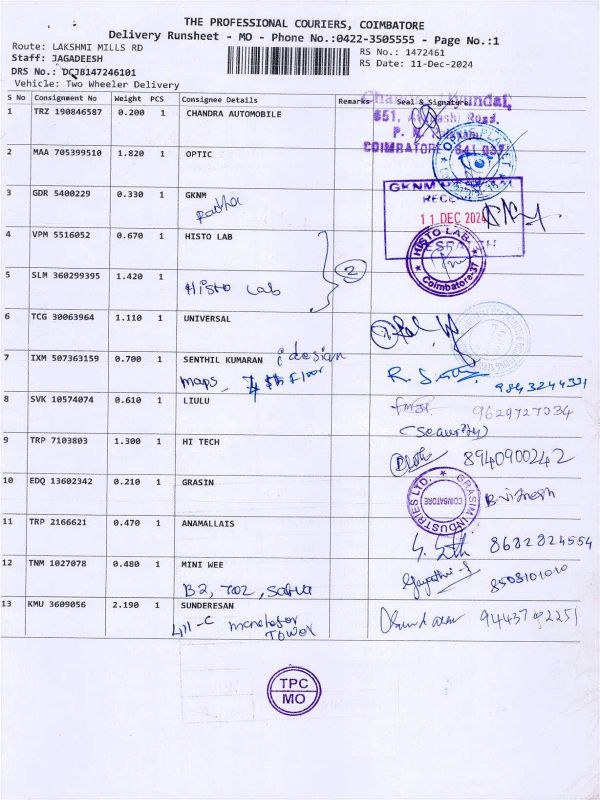 THE PROFESSIONAL COURIERS, COIMBATORE
Delivery Runsheet - MO - Phone No.:0422-3505555 - Page No.:1
Route: LAKSHMI MILLS RD
Staff: JAGADEESH
DRS No.: DCJ8147246101
Vehicle: Two Wheeler Delivery
RS No.: 1472461
RS Date: 11-Dec-2024
S No Consignment No Weight PCS Consignee Details Remarks Seal & Signature
651, Avinashi Road,
COIMBATORE 641 037
1 TRZ 190846587 0.200 1 CHANDRA AUTOMOBILE
2 MAA 705399510 1.820 1 OPTIC
3 GDR 5400229 0.330 1 GKNM
GKNM
11 DEC 2024
4 VPM 5516052 0.670 1 HISTO LAB
HISTO LAB
Coimbatore-37
2
5 SLM 360299395 1.420 1
Histo Lab
6 TCG 30063964 1.110 1 UNIVERSAL
7 IXM 507363159 0.700 1 SENTHIL KUMARAN i design
maps 4th Floor
9843244331
8 SVK 10574074 0.610 1 LIULU
9629727034
(Security)
9 TRP 7103803 1.300 1 HI TECH
8940900242
10 EDQ 13602342 0.210 1 GRASIN
GRASIM INDUSTRIES LTD.
COIMBATORE
B. Vignesh
11 TRP 2166621 0.470 1 ANAMALLAIS
8682824554
12 TNM 1027078 0.480 1 MINI WEE
B2, 702,
Gayathri
8508101010
13 KMU 3609056 2.190 1 SUNDERESAN
411-C
Tower
TPC
MO